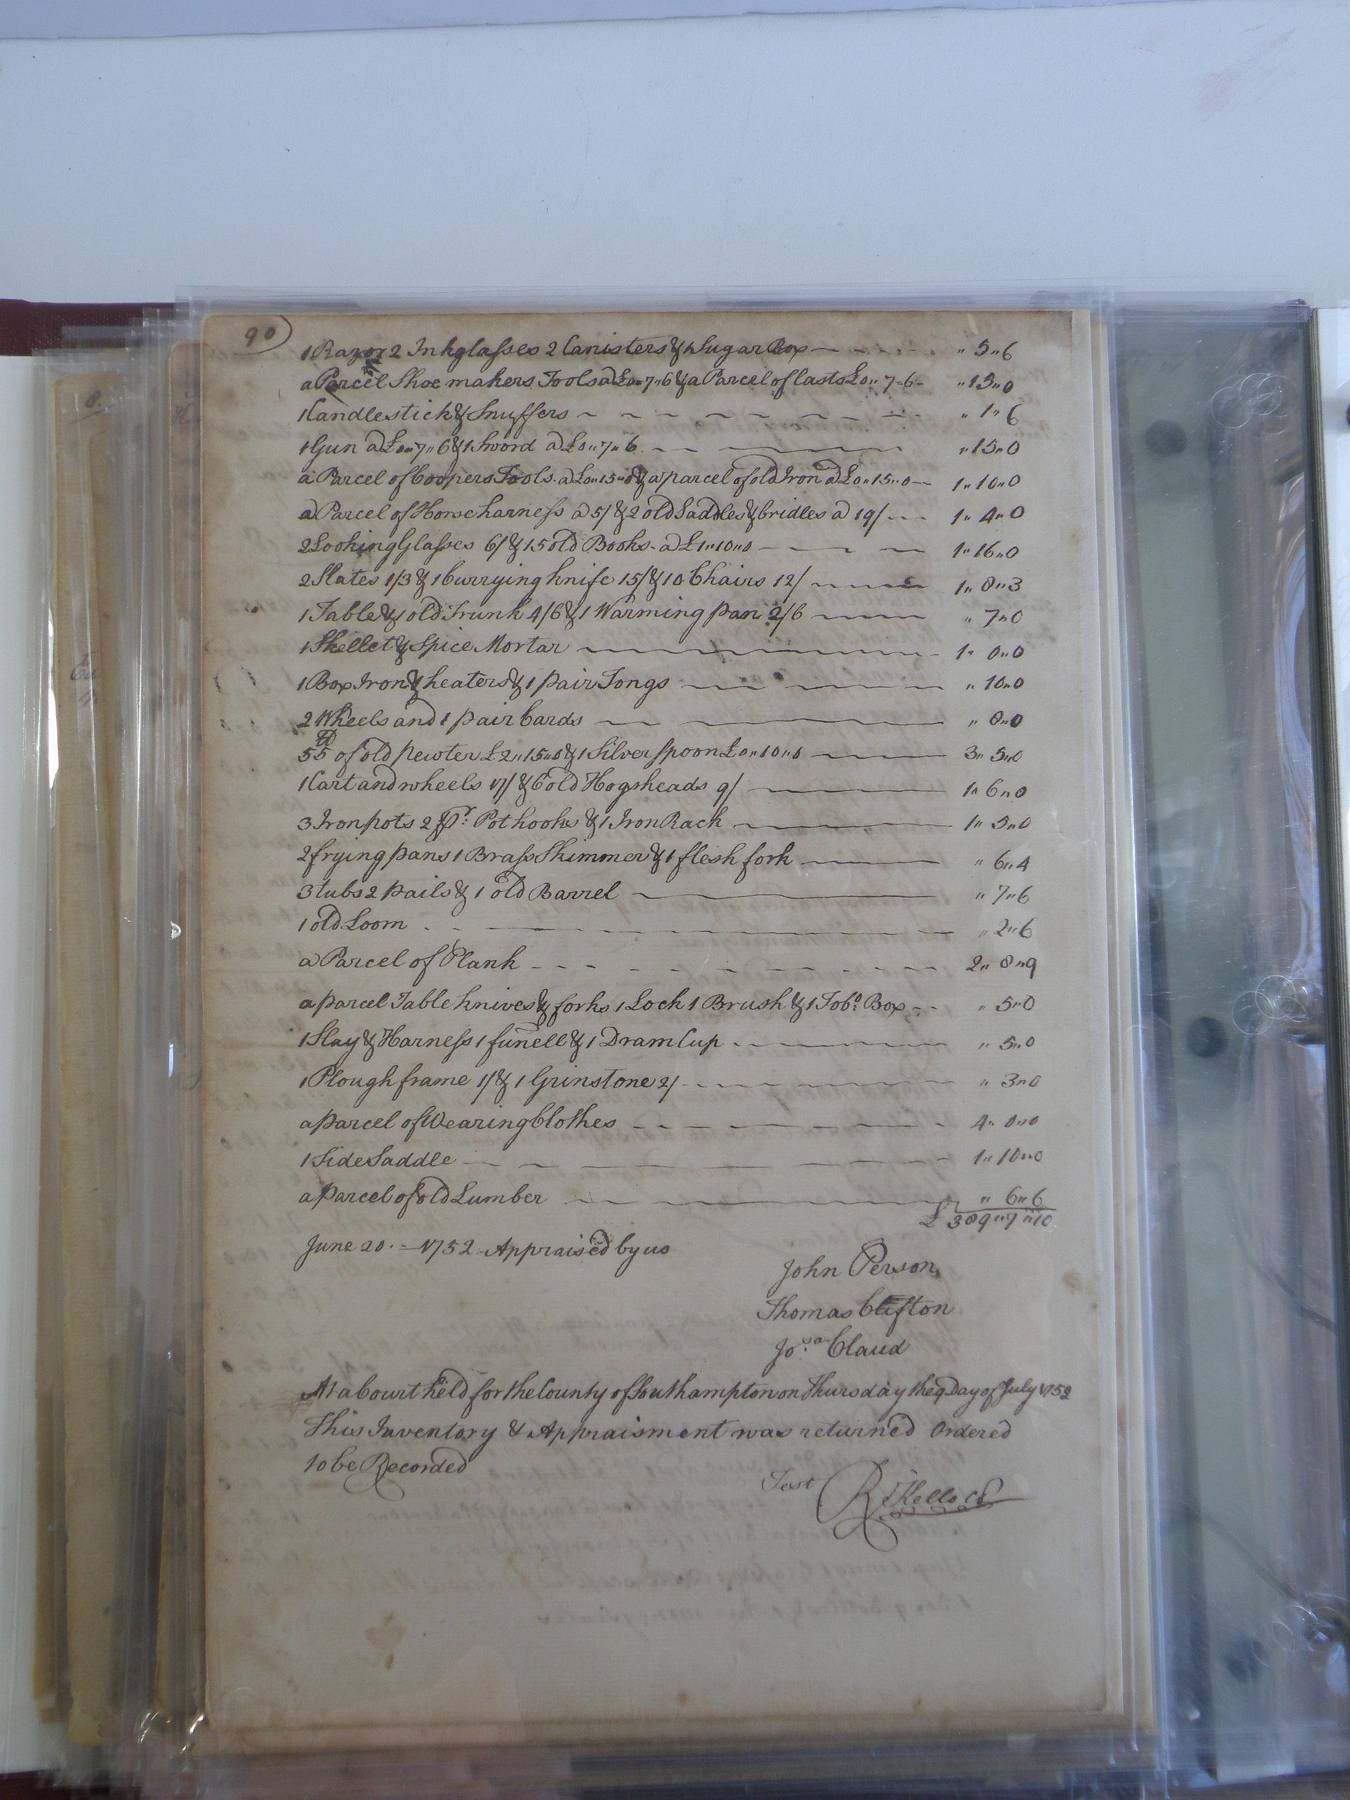 90
1 Razor 2 Inkglasses 2 Canisters & 1 Sugar Box " 5 " 6
a Parcel Shoemakers Tools a £0 " 7 " 6 & a Parcel of lasts £0 " 7 " 6 " 15 " 0
1 Candlestick & Snuffers " 1 " 6
1 Gun a £0 " 7 " 6 & 1 Sword a £0 " 7 " 6 " 15 " 0
a Parcel of Coopers Tools a £0 " 15 " 0 & a parcel of old Iron a £0 " 15 " 0 1 " 10 " 0
a Parcel of Horse harness a 5/ & 2 old Saddles & bridles a 19/ 1 " 4 " 0
2 Looking Glasses 6/ & 15 old Books a £1 " 10 " 0 1 " 16 " 0
2 Slates 1/3 & 1 Currying knife 15/ & 10 Chairs 12/ 1 " 8 " 3
1 Table & 1 old Trunk 4/6 & 1 Warming pan 2/6 " 7 " 0
1 Skellet & Spice Mortar 1 " 0 " 0
1 Box Iron & heaters & 1 pair Tongs " 10 " 0
2 Wheels and 1 pair Cards " 8 " 0
55 of old pewter £2 " 15 " 0 & 1 Silver spoon £0 " 10 " 0 3 " 5 " 0
1 Cart and wheels 17/ & 6 old Hogsheads 9/ 1 " 6 " 0
3 Iron pots 2 pr. Pothooks & 1 Iron Rack 1 " 5 " 0
2 frying pans 1 Brass Skimmer & 1 flesh fork " 6 " 4
3 tubs 2 pails & 1 old Barrel " 7 " 6
1 old Loom " 2 " 6
a Parcel of Plank 2 " 8 " 9
a parcel Table knives & forks 1 Lock 1 Brush & 1 Tobo. Box " 5 " 0
1 Slay & Harness 1 funell & 1 Dram Cup " 5 " 0
1 Plough frame 1/ & 1 Grinstone 2/ " 3 " 0
a parcel of Wearing Clothes 4 " 0 " 0
1 Side Saddle 1 " 10 " 0
a parcel of old Lumber " 6 " 6
£ 389 " 7 " 10
June 20. 1752 Appraised by us
John Person
Thomas Clifton
Josa. Claud
At a Court held for the County of Southampton on Thursday the 9 Day of July 1752
This Inventory & Appraisment was returned Ordered
to be Recorded
Test R Kello CC